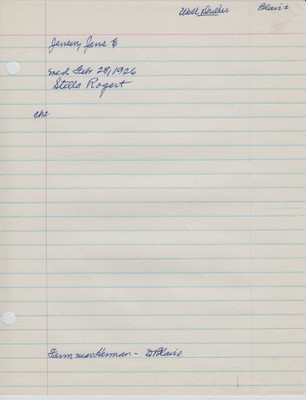 Well Driller Blair
Jensen, Jens E
md Feb 28, 1926
Stella Rogert
chr
Farm near Herman - Blair